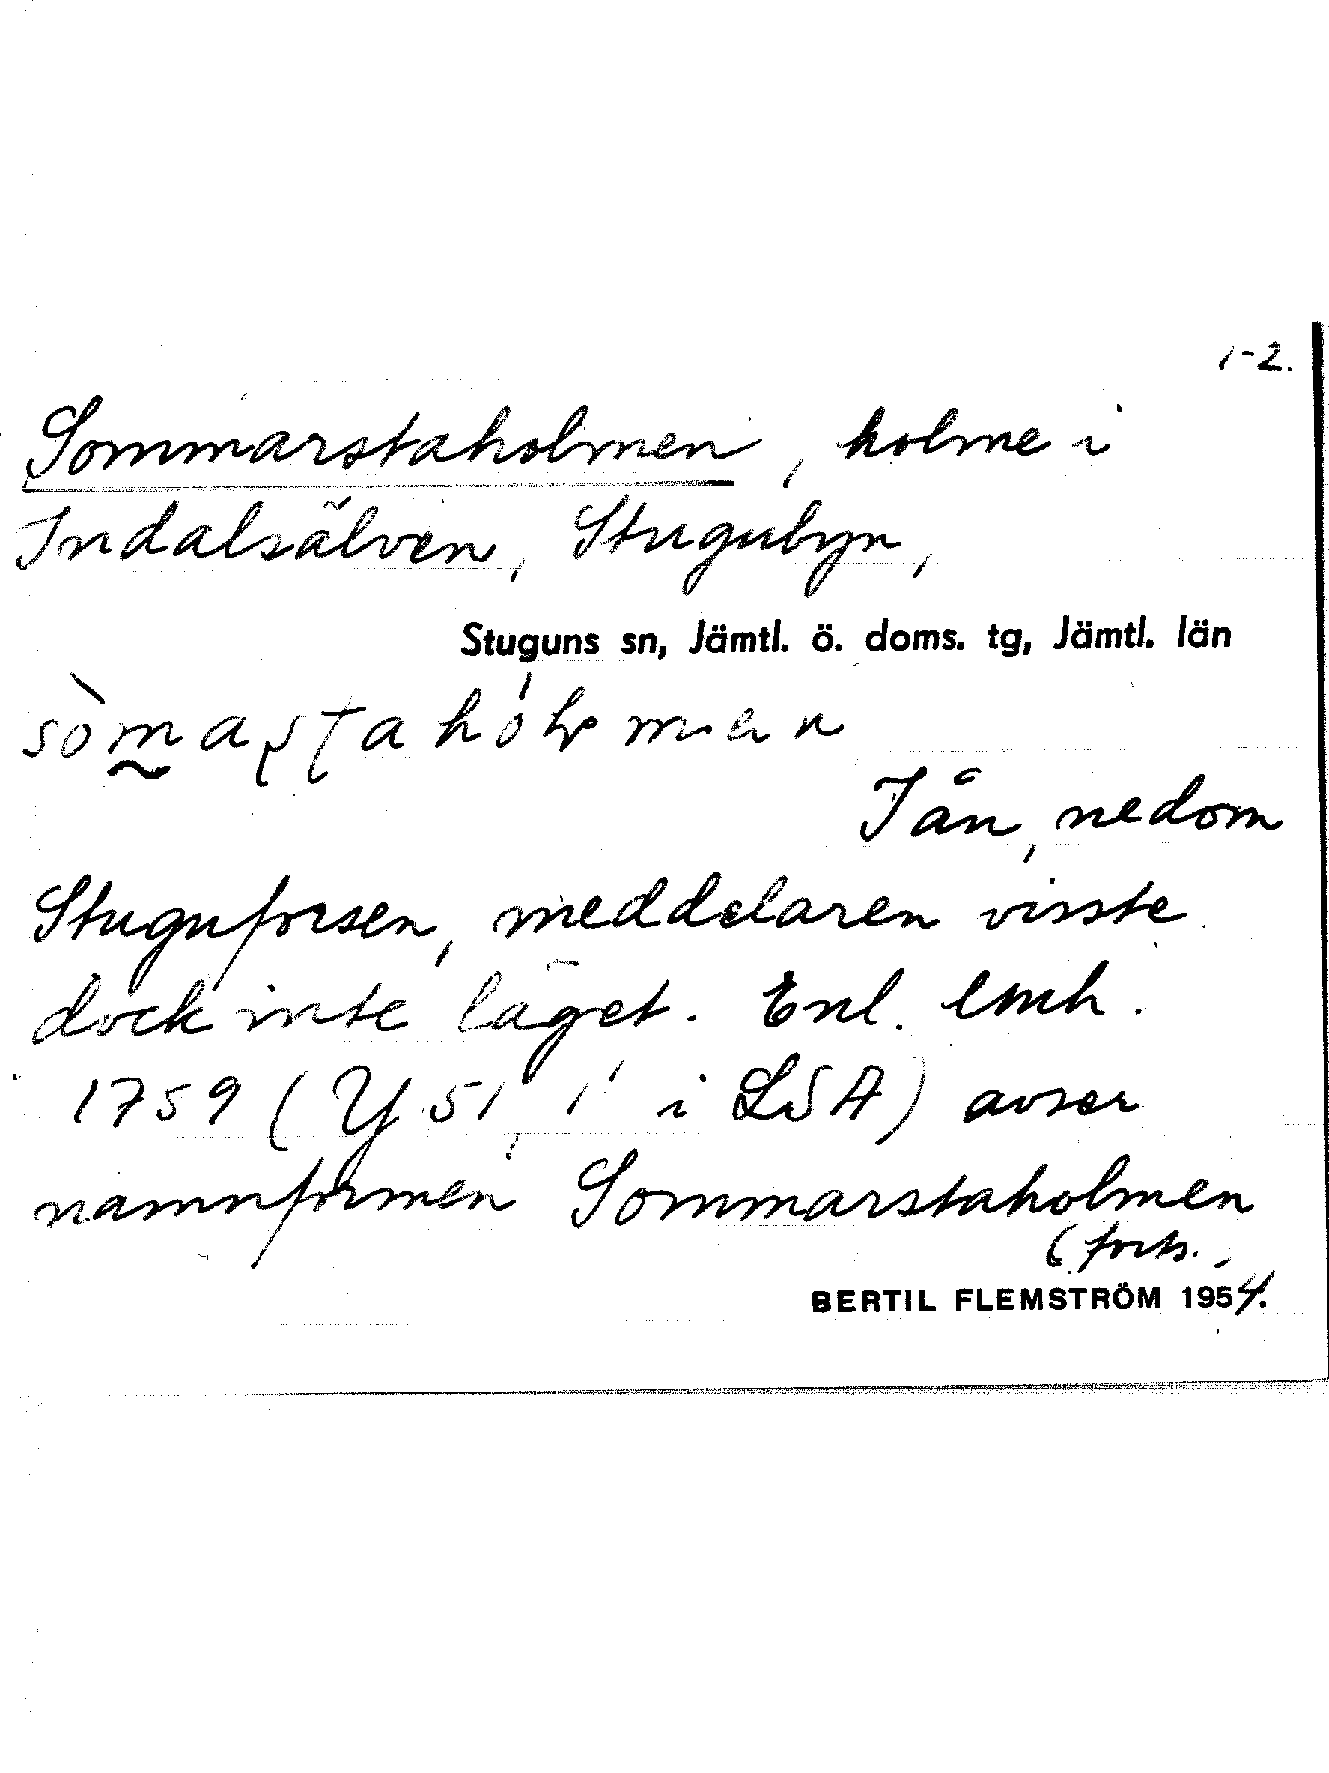 1-2.
Sommarstaholmen, holme i
Indalsälven, Stugubyn,
Stuguns sn, Jämtl. ö. doms. tg, Jämtl. län
I ån, nedom
Stuguforsen, meddelaren visste
dock inte läget. Enl. lmh.
1759 (Y 51, 1 i LSA) avser
namnformen Sommarstaholmen
(forts.,
BERTIL FLEMSTRÖM 1954.